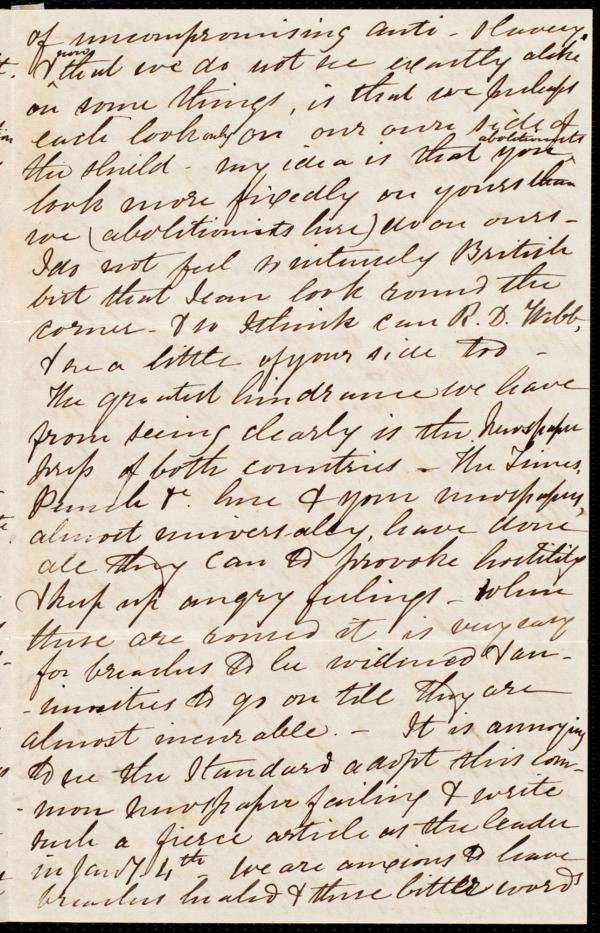 of uncompromising anti-slavery.
& now that we do not see exactly alike
on some things, is that we perhaps
each look only on our own side of
the shield - my idea is that you abolitionists
look more fixedly on yours than
we (abolitionists here) do on ours -
I do not feel so intensely British
but that I can look round the
corner - & so I think can R. D. Webb,
& see a little of your side too -
The greatest hindrance we have
from seeing clearly is the Newspaper
press of both countries - The Times,
Punch &c. here & your newspapers,
almost universally, have done
all they can to provoke hostility
& keep up angry feelings - When
these are roused it is very easy
for breaches to be widened & an-
-imosities to go on till they are
almost incurable. - It is annoying
to see the Standard adopt this com-
-mon newspaper failing & write
such a fierce article as the leader
in Jany. 4th - We are anxious to have
breaches healed & these bitter words